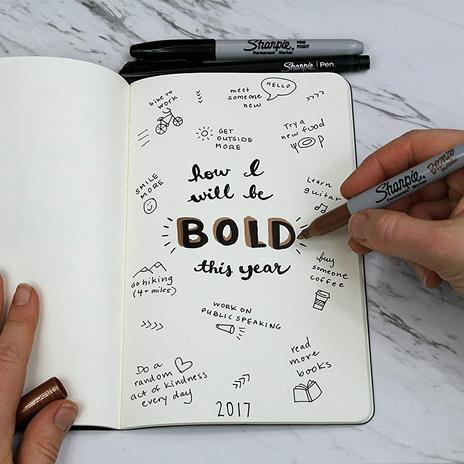 Sharpie
FINE POINT
Permanent Marker
Sharpie. Pen.
bike to
work
meet
someone
new
HELLO
GET
OUTSIDE
MORE
Try a
new food
SMILE
MORE
how I
will be
BOLD
this year
Learn
guitar
Sharpie
Permanent Marker
Bronze
go hiking
(4+ miles)
buy
someone
coffee
WORK ON
PUBLIC SPEAKING
Do a
random
act of kindness
every day
read
more
books
2017